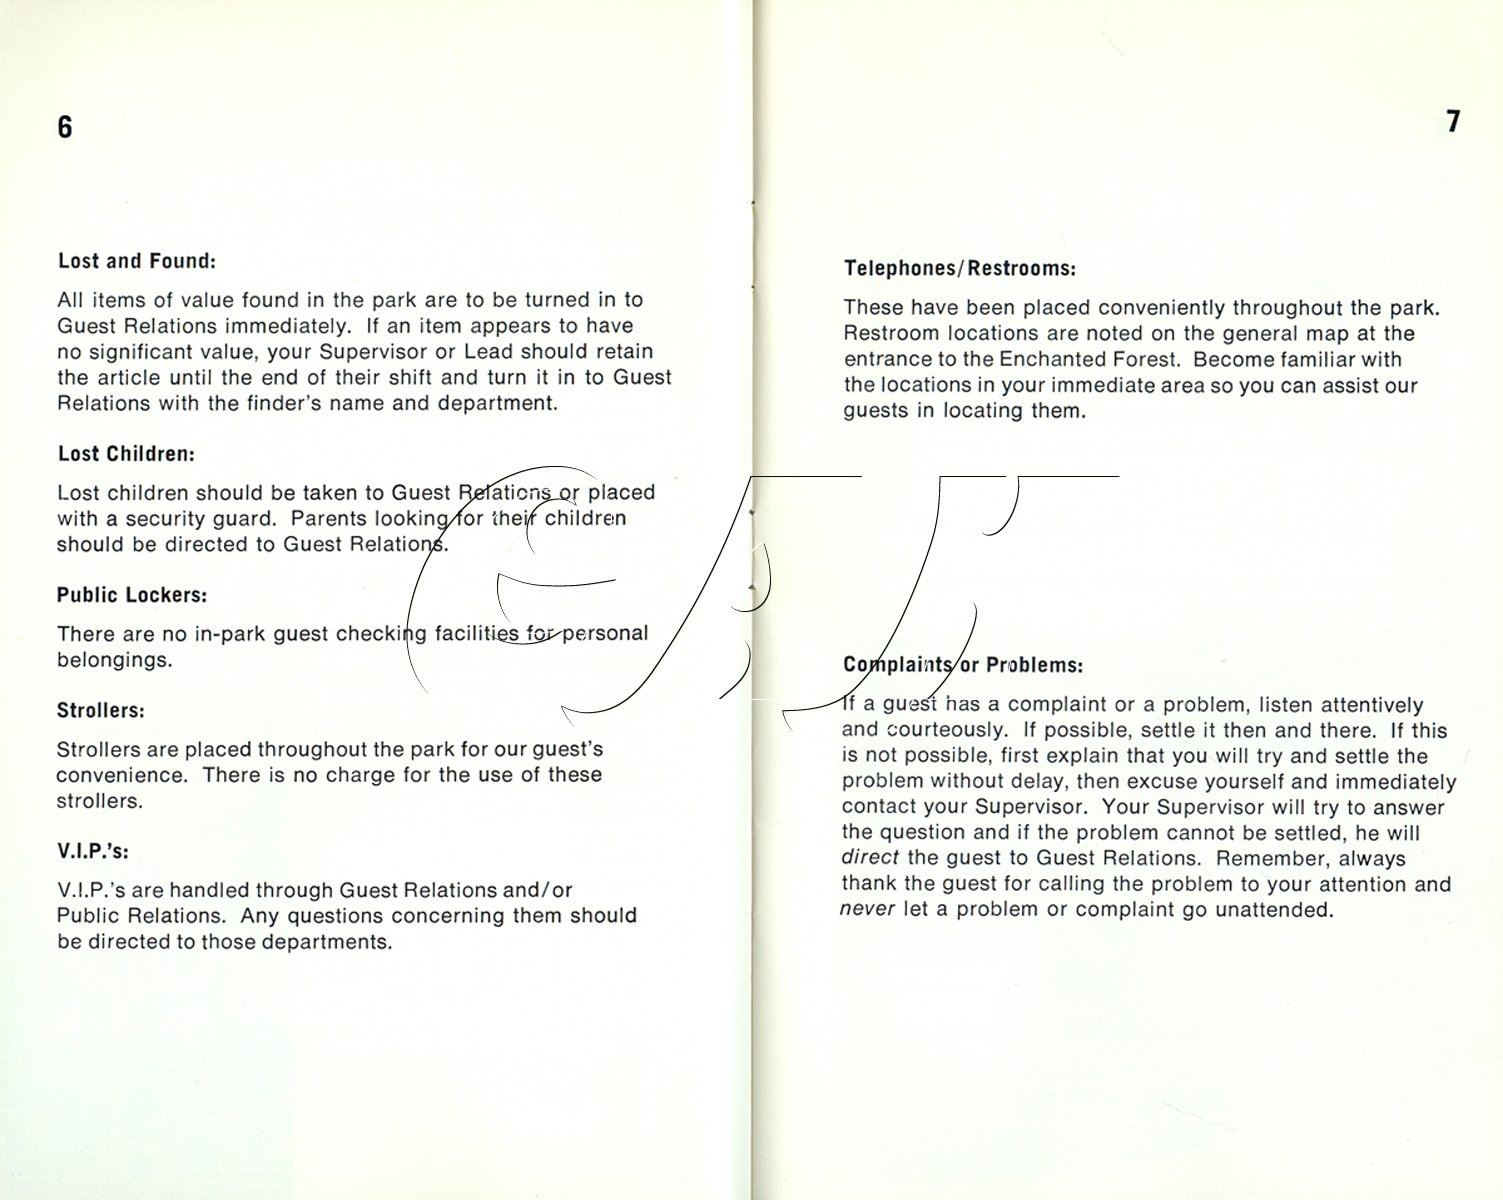 6
Lost and Found:
All items of value found in the park are to be turned in to
Guest Relations immediately. If an item appears to have
no significant value, your Supervisor or Lead should retain
the article until the end of their shift and turn it in to Guest
Relations with the finder's name and department.
Lost Children:
Lost children should be taken to Guest Relations or placed
with a security guard. Parents looking for their children
should be directed to Guest Relations.
Public Lockers:
There are no in-park guest checking facilities for personal
belongings.
Strollers:
Strollers are placed throughout the park for our guest's
convenience. There is no charge for the use of these
strollers.
V.I.P.'s:
V.I.P.'s are handled through Guest Relations and/or
Public Relations. Any questions concerning them should
be directed to those departments.
7
Telephones/Restrooms:
These have been placed conveniently throughout the park.
Restroom locations are noted on the general map at the
entrance to the Enchanted Forest. Become familiar with
the locations in your immediate area so you can assist our
guests in locating them.
Complaints or Problems:
If a guest has a complaint or a problem, listen attentively
and courteously. If possible, settle it then and there. If this
is not possible, first explain that you will try and settle the
problem without delay, then excuse yourself and immediately
contact your Supervisor. Your Supervisor will try to answer
the question and if the problem cannot be settled, he will
direct the guest to Guest Relations. Remember, always
thank the guest for calling the problem to your attention and
never let a problem or complaint go unattended.